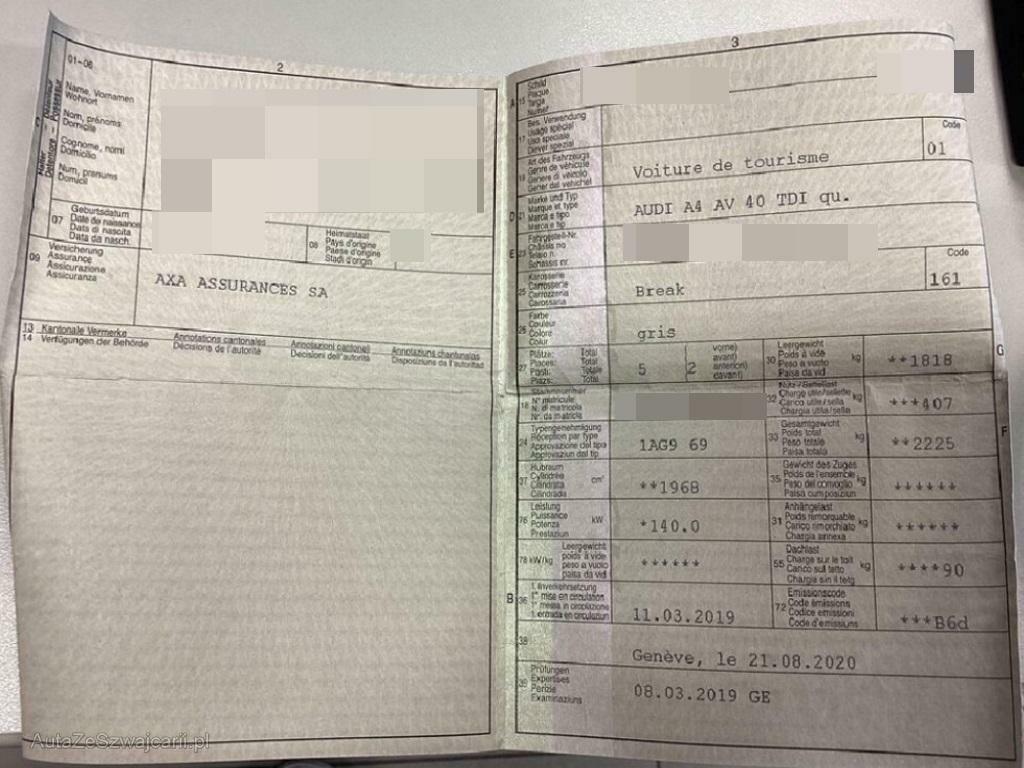 2
01-06
Name, Vornamen
Wohnort
Nom, prénoms
Domicile
Cognome, nomi
Domicilio
Num, prenums
Domicil
C
Halter
Détenteur
07
Geburtsdatum
Date de naissance
Data di nascita
Data da nasch.
08
Heimatstaat
Pays d'origine
Paese d'origine
Stadi d'origin
09
Versicherung
Assurance
Assicurazione
Assicuranza
AXA ASSURANCES SA
13
14
Kantonale Vermerke
Verfügungen der Behörde
Annotations cantonales
Décisions de l'autorité
Annotazioni cantonali
Decisioni dell'autorità
Annotaziuns chantunalas
Disposiziuns da l'autoritad
3
A
15
Schild
Plaque
Targa
Numer
17
Bes. Verwendung
Usage spécial
Uso speciale
Diever spezial
19
Art des Fahrzeugs
Genre de véhicule
Genere di veicolo
Gener dal vehichel
Voiture de tourisme
Code
01
D
21
Marke und Typ
Marque et type
Marca e tipo
Marca e tip
AUDI A4 AV 40 TDI qu.
E
23
Fahrgestell-Nr.
Châssis no
Telaio n.
Schassis nr.
25
Karosserie
Carrosserie
Carrozzeria
Carossaria
Break
Code
161
26
Farbe
Couleur
Colore
Colur
gris
27
Plätze: Total
Places: Total
Posti: Totale
Plazs: Total
5
2
vorne)
avant)
anteriori)
davant)
G
30
Leergewicht
Poids à vide
Peso a vuoto
Paisa da vid
kg
**1818
18
Stammnummer
N° matricule
N. di matricola
Nr. da matricla
32
Nutz-/Sattellast
Charge utile/sellette
Carico utile/sella
Chargia utila/sella
kg
***407
24
Typengenehmigung
Réception par type
Approvazione del tipo
Approvaziun dal tip
1AG9 69
F
33
Gesamtgewicht
Poids total
Peso totale
Paisa totala
kg
**2225
37
Hubraum
Cylindrée
Cilindrata
Cilindrada
cm³
**1968
35
Gewicht des Zuges
Poids de l'ensemble
Peso del convoglio
Paisa cumposiziun
kg
******
76
Leistung
Puissance
Potenza
Prestaziun
kW
*140.0
31
Anhängelast
Poids remorquable
Carico rimorchiato
Chargia annexa
kg
******
78
kW/kg
Leergewicht
poids à vide
peso a vuoto
paisa da vid
******
55
Dachlast
Charge sur le toit
Carico sul tetto
Chargia sin il tetg
kg
****90
B
36
1. Inverkehrsetzung
1re mise en circulation
1a messa in circolazione
1. entrada en circulaziun
11.03.2019
72
Emissionscode
Code émissions
Codice emissioni
Code d'emissiuns
***B6d
38
Genève, le 21.08.2020
39
Prüfungen
Expertises
Perizie
Examinaziuns
08.03.2019 GE
AutaZeSzwajcarii.pl